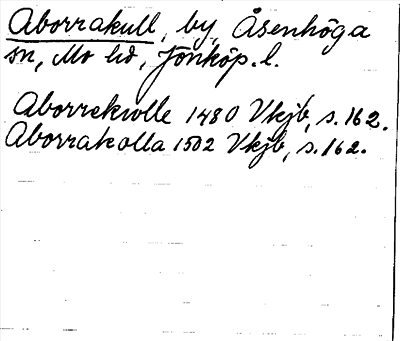 Aborrakull, by, Åsenhöga
sn, Mo hd, Jönköp. l.
Aborrekwlle 1480 Vkjb, s. 162.
Aborrakolla 1502 Vkjb, s. 162.